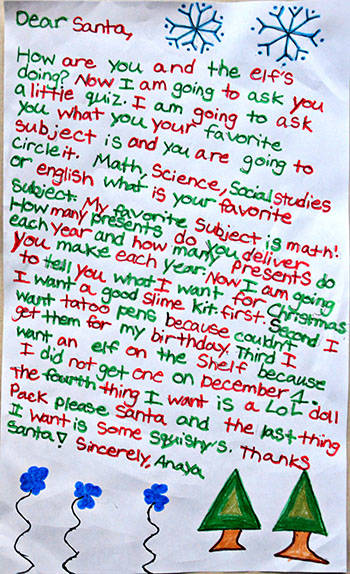 Dear Santa,
How are you and the elf's
doing? Now I am going to ask you
a little quiz. I am going to ask
you what you your favorite
subject is and you are going to
circle it. Math, Science, Social studies
or english what is your favorite
subject. My favorite Subject is math!
How many presents do you deliver
each year and how many presents do
you make each year. Now I am going
to tell you what I want for Christmas
I want a good slime kit first. Second I
want tatoo pens because couldn't
get them for my birthday. Third I
want an elf on the Shelf because
I did not get one on december 1.
the fourth thing I want is a LOL doll
Pack please Santa and the last thing
I want is some squishy's. Thanks
Santa! Sincerely, Anaya